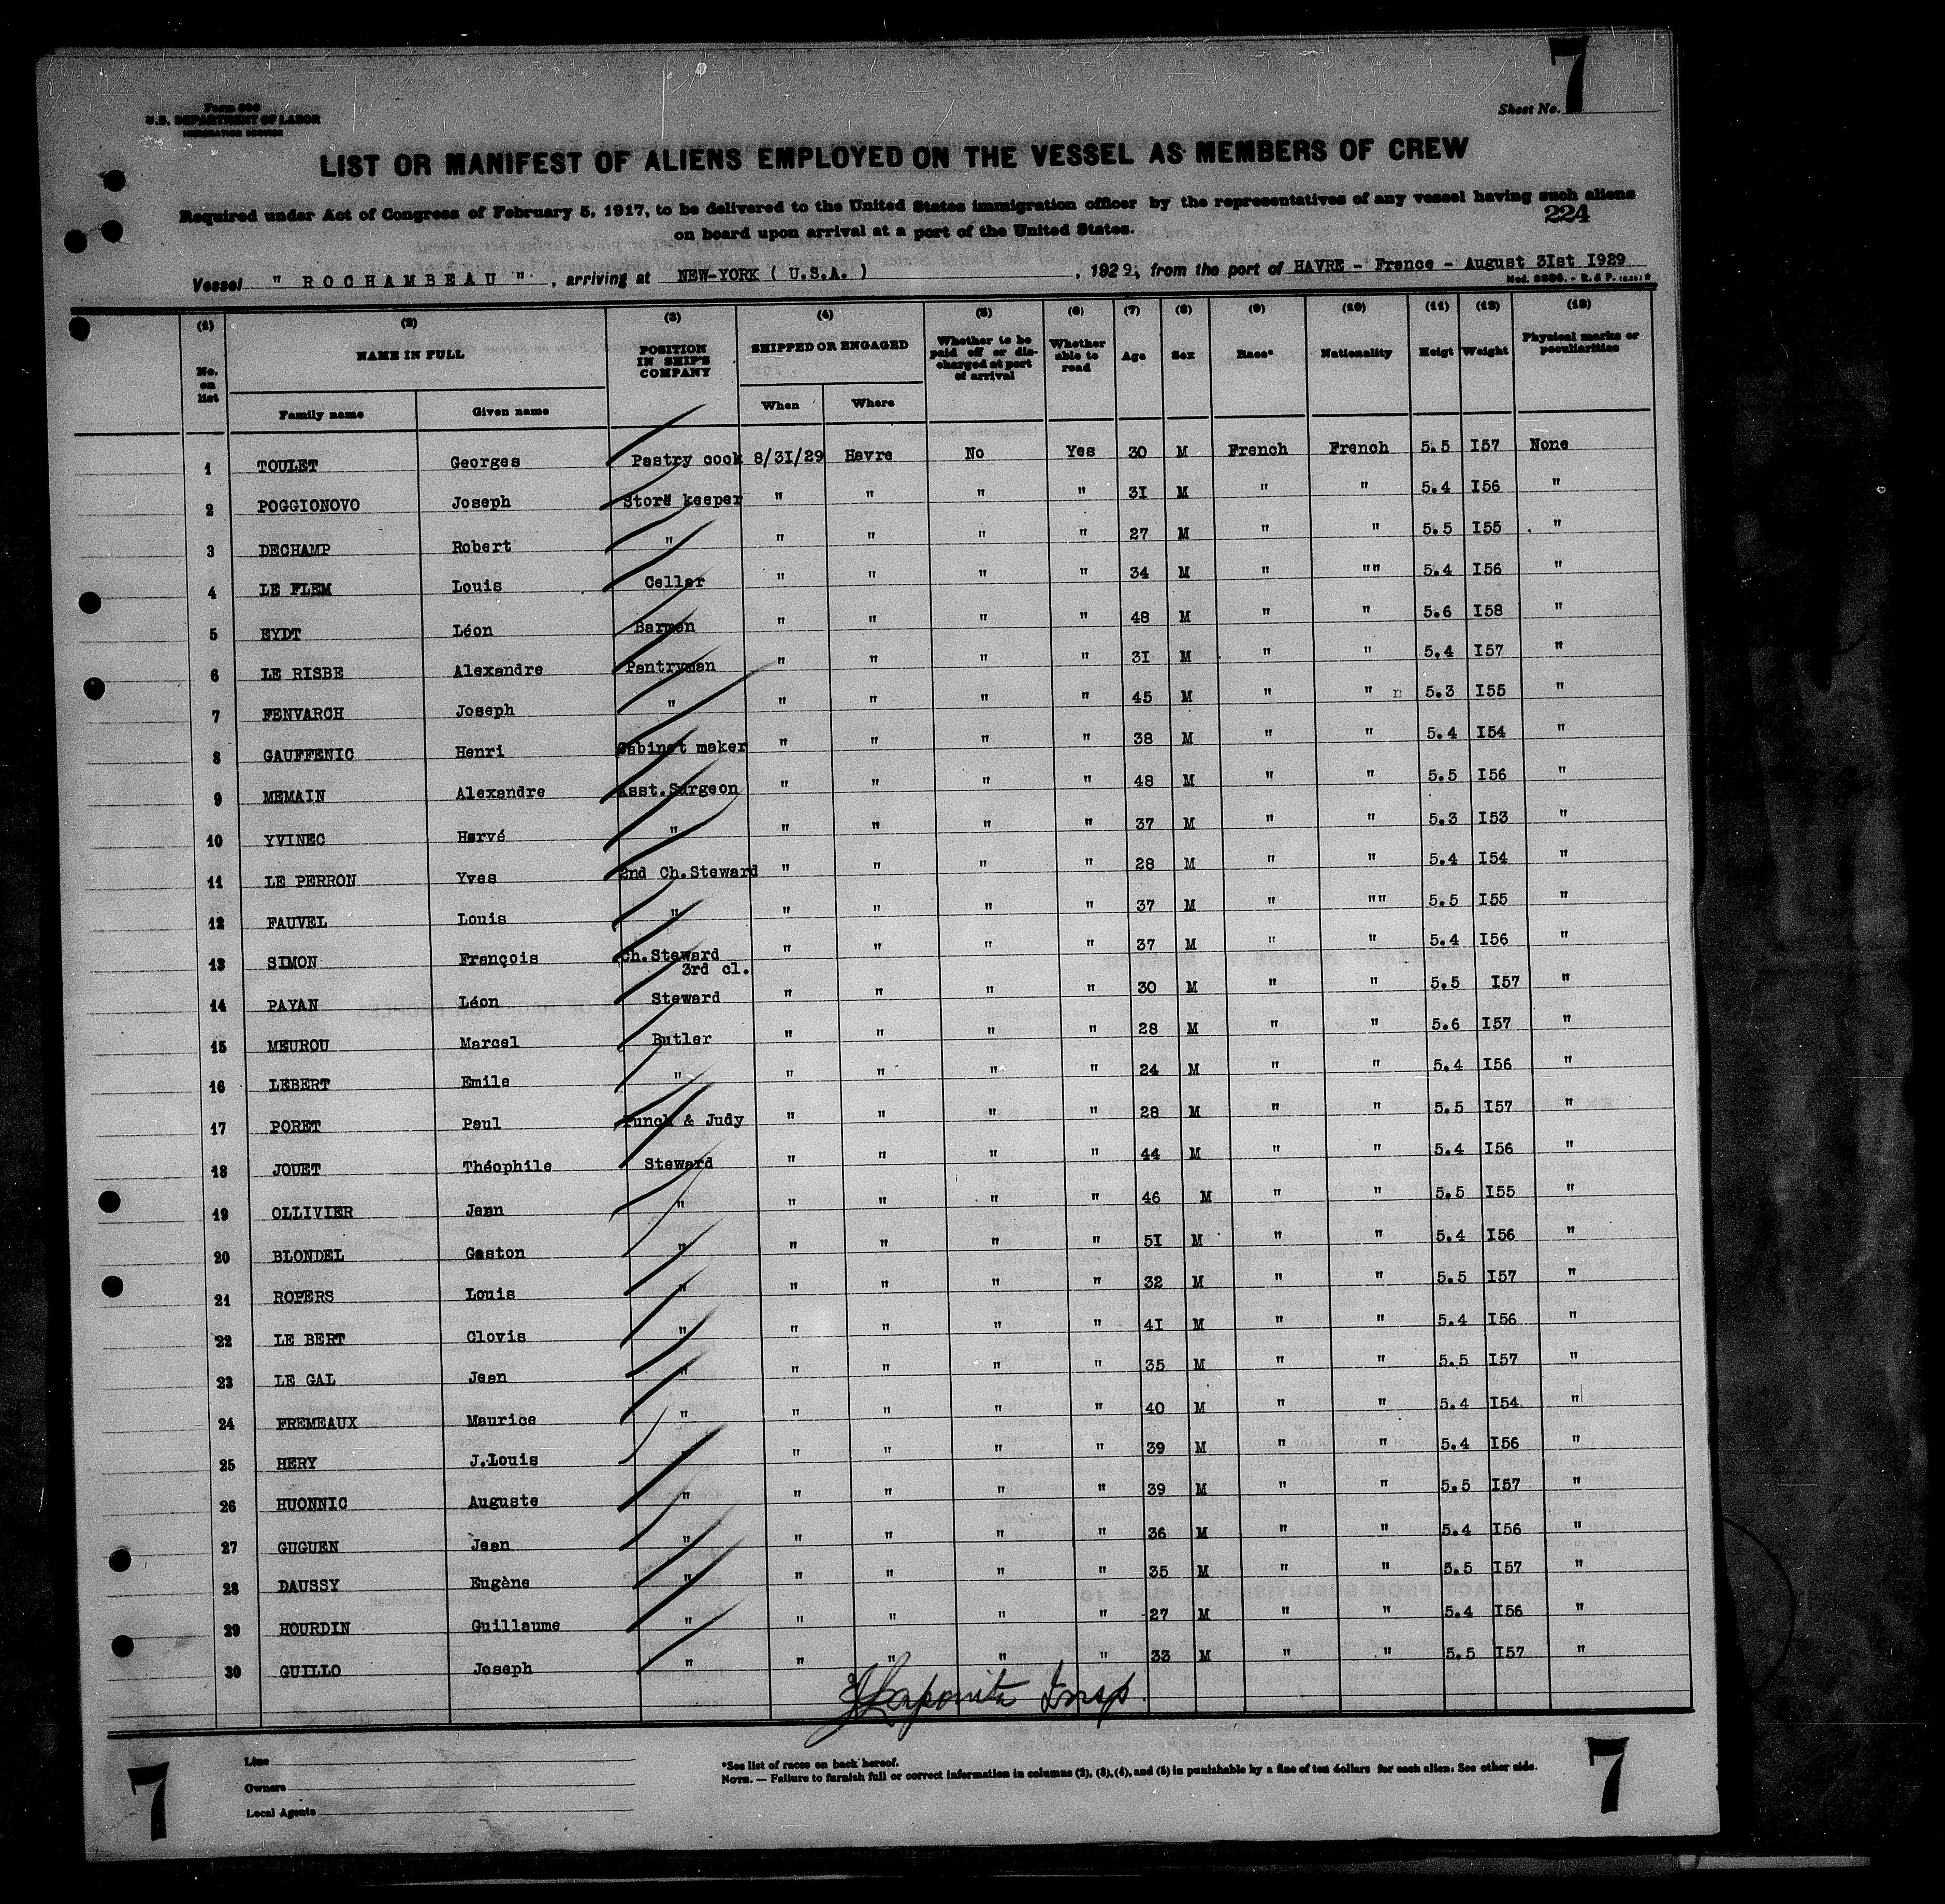 7
Form 680
U.S. DEPARTMENT OF LABOR
IMMIGRATION SERVICE
Sheet No.
LIST OR MANIFEST OF ALIENS EMPLOYED ON THE VESSEL AS MEMBERS OF CREW
Required under Act of Congress of February 5, 1917, to be delivered to the United States immigration officer by the representatives of any vessel having such aliens
on board upon arrival at a port of the United States.
224
Vessel " ROCHAMBEAU ", arriving at NEW-YORK ( U.S.A. ), 1929, from the port of HAVRE - France - August 3Ist I929
(1) (2) (3) (4) (5) (6) (7) (8) (9) (10) (11) (12) (13)
No. on list NAME IN FULL POSITION IN SHIP'S COMPANY SHIPPED OR ENGAGED Whether to be paid off or discharged at port of arrival Whether able to read Age Sex Race* Nationality Heigt Weight Physical marks or peculiarities
Family name Given name When Where
1 TOULET Georges Pastry cook 8/3I/29 Havre No Yes 30 M French French 5.5 I57 None
2 POGGIONOVO Joseph Store keeper " " " " 3I M " " 5.4 I56 "
3 DECHAMP Robert " " " " " 27 M " " 5.5 I55 "
4 LE FLEM Louis Cellar " " " " 34 M " "" 5.4 I56 "
5 EYDT Léon Barman " " " " 48 M " " 5.6 I58 "
6 LE RISBE Alexandre Pantryman " " " " 3I M " " 5.4 I57 "
7 FENVARCH Joseph " " " " " 45 M " " n 5.3 I55 "
8 GAUFFENIC Henri Cabinet maker " " " " 38 M " " 5.4 I54 "
9 MEMAIN Alexandre Asst.Surgeon " " " " 48 M " " 5.5 I56 "
10 YVINEC Hervé " " " " " 37 M " " 5.3 I53 "
11 LE PERRON Yves 2nd Ch.Steward " " " " 28 M " " 5.4 I54 "
12 FAUVEL Louis " " " " " 37 M " "" 5.5 I55 "
13 SIMON François Ch.Steward 3rd cl. " " " " 37 M " " 5.4 I56 "
14 PAYAN Léon Steward " " " " 30 M " " 5.5 I57 "
15 MEUROU Marcel Butler " " " " 28 M " " 5.6 I57 "
16 LEBERT Emile " " " " " 24 M " " 5.4 I56 "
17 PORET Paul Punch & Judy " " " " 28 M " " 5.5 I57 "
18 JOUET Théophile Steward " " " " 44 M " " 5.4 I56 "
19 OLLIVIER Jean " " " " " 46 M " " 5.5 I55 "
20 BLONDEL Gaston " " " " " 5I M " " 5.4 I56 "
21 ROPERS Louis " " " " " 32 M " " 5.5 I57 "
22 LE BERT Clovis " " " " " 4I M " " 5.4 I56 "
23 LE GAL Jean " " " " " 35 M " " 5.5 I57 "
24 FREMEAUX Maurice " " " " " 40 M " " 5.4 I54 "
25 HERY J.Louis " " " " " 39 M " " 5.4 I56 "
26 HUONNIC Auguste " " " " " 39 M " " 5.5 I57 "
27 GUGUEN Jean " " " " " 36 M " " 5.4 I56 "
28 DAUSSY Eugène " " " " " 35 M " " 5.5 I57 "
29 HOURDIN Guillaume " " " " " 27 M " " 5.4 I56 "
30 GUILLO Joseph " " " " " 33 M " " 5.5 I57 "
Insp.
Line
Owners
Local Agents
*See list of races on back hereof.
NOTE. — Failure to furnish full or correct information in columns (2), (3), (4), and (5) in punishable by a fine of ten dollars for each alien. See other side.
7
7